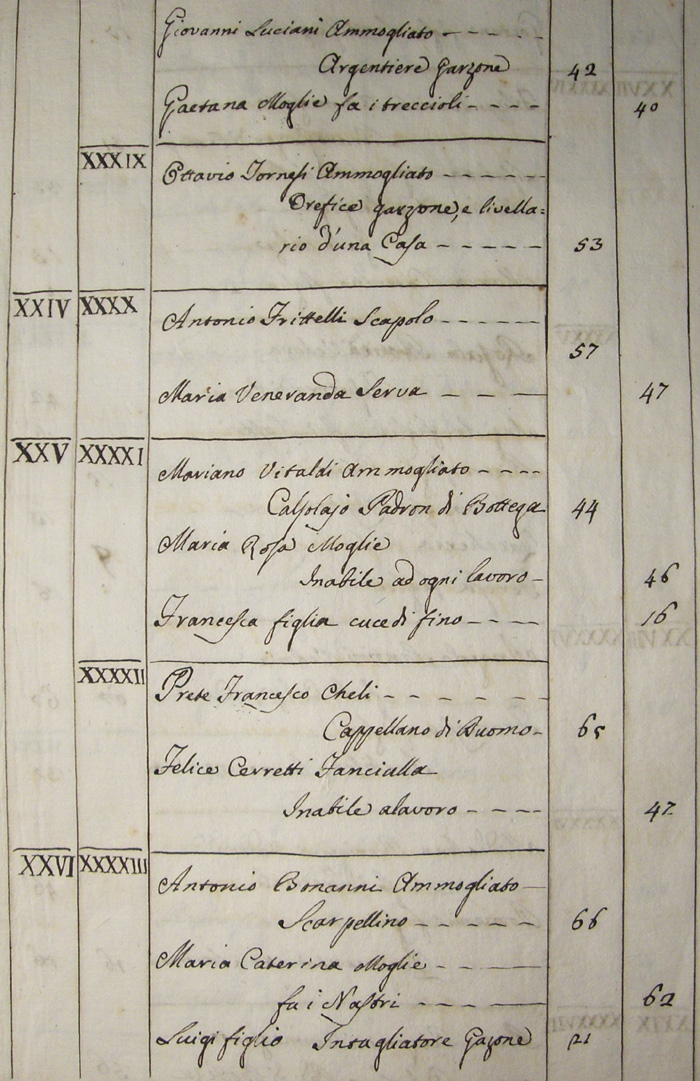 Giovanni Luciani Ammogliato - - - - -
Argentiere Garzone 42
Gaetana Moglie fa i treccioli - - - - 40
XXXIX Ottavio Tornesi Ammogliato - - - - - -
Orefice garzone, e livella=
rio d'una Casa - - - - - 53
XXIV XXXX Antonio Frittelli Scapolo - - - - - -
57
Maria Veneranda Serva - - - 47
XXV XXXXI Mariano Vitaldi Ammogliato - - - -
Calsolajo Padron di Bottega 44
Maria Rosa Moglie
Inabile ad ogni lavoro - 46
Francesca figlia cuce di fino - - - - 16
XXXXII Prete Francesco Cheli - - - - - -
Cappellano di Duomo - 65
Felice Cerretti Fanciulla
Inabile a lavoro - - - - 47
XXVI XXXXIII Antonio Bonanni Ammogliato -
Scarpellino - - - - - 66
Maria Caterina Moglie - - - -
fa i Nastri - - - - 62
Luigi figlio Intagliatore Gazone 21